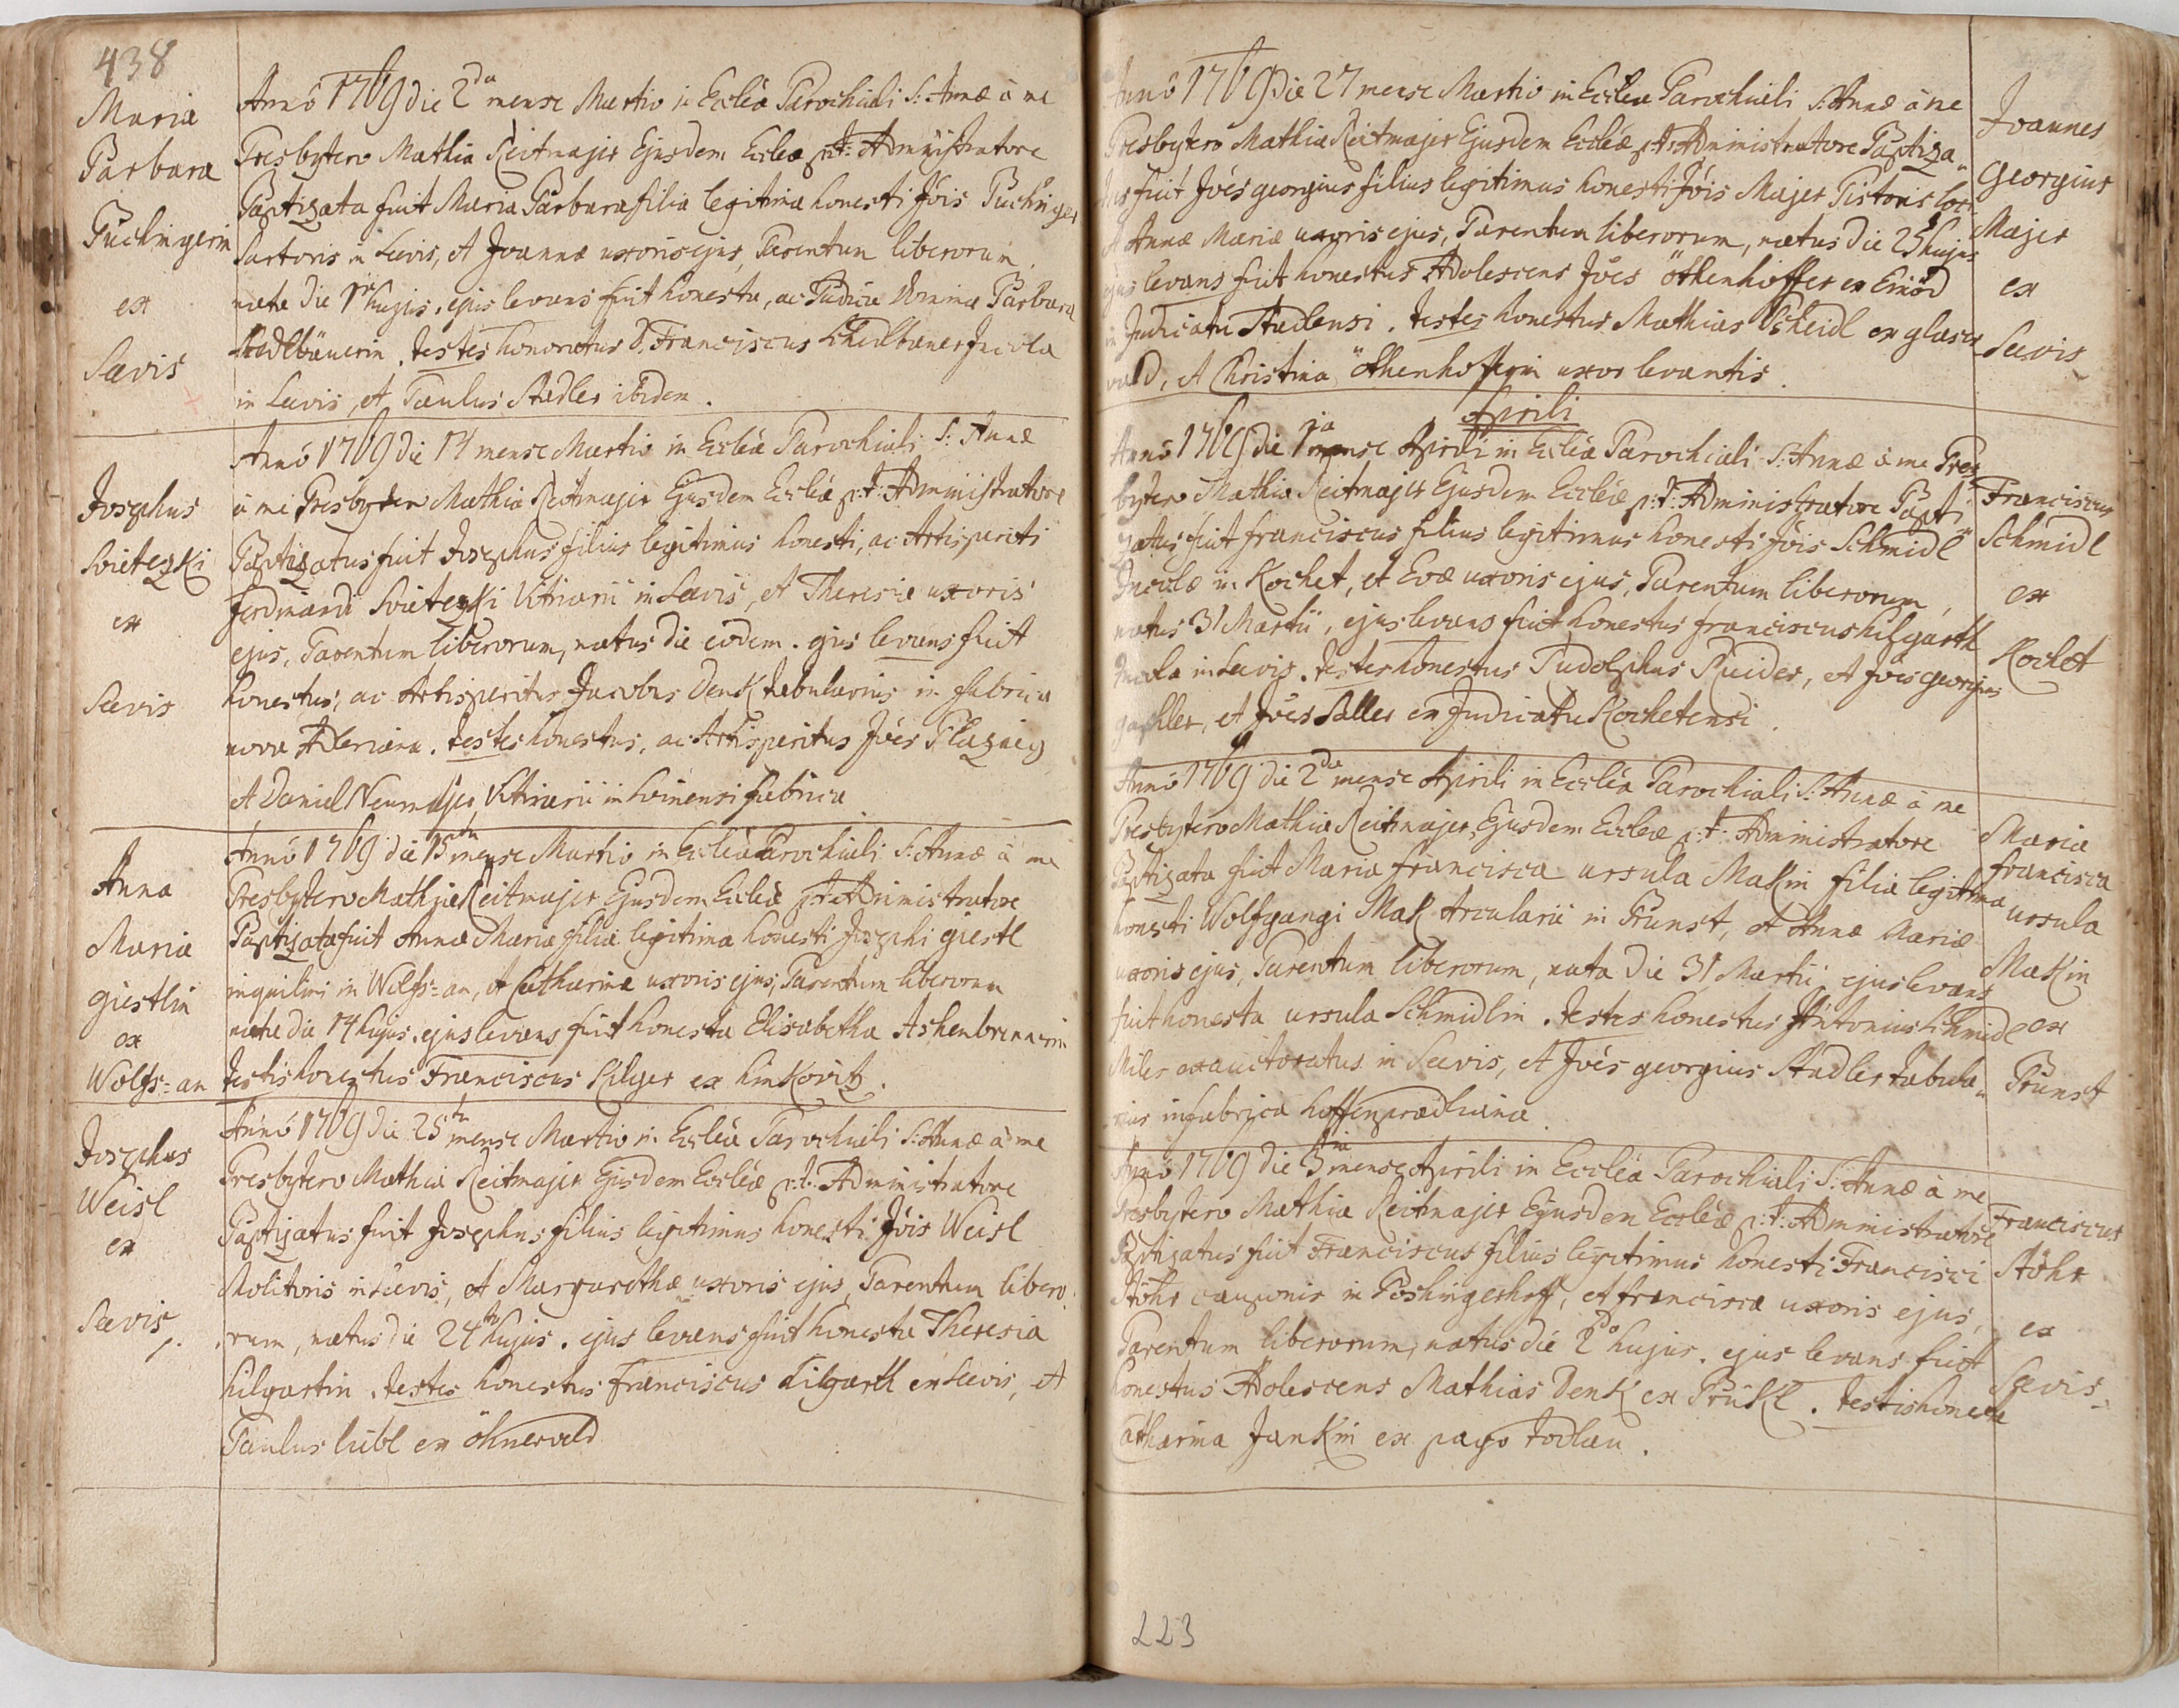 438
Maria
Barbara
Puchingerin
ex
Sevis
Anno 1769 die 2da mense Martio in Ecclea Parochiali S: Annæ à me
Presbytero Mathia Reitmajer Ejusdem Eccleæ p:t: Administratore
Baptizata fuit Maria Barbara filia legitima honesti Jois Puchinger
Sartoris in Sevis, et Joannæ uxoris ejus, Parentum liberorum,
nata die 1a hujus. ejus levans fuit honesta, ac Pudica Domina Barbara
testes honoratus D. Franciscus Incola
in Sevis, et Paulus Stadler ibidem.
Josephus
Svietezki
ex
Sevis
Anno 1769 die 14 mense Martio in Ecclea Parochiali S: Annæ
à me Presbytero Mathia Reitmajer Ejusdem Eccleæ p:t: Administratore
Baptizatus fuit Josephus filius legitimus honesti, ac Artisperiti
Ferdinandi Svietezki Vitriarii in Sevis, et Theresiæ uxoris
ejus, Parentum liberorum, natus die eodem. ejus levans fuit
honestus, ac Artisperitus Jacobus Denk tabularius in fabrica
nova testes honestus, ac Artisperitus Joes
et Daniel Neumajer Vitriarii in fabrica
Anna
Maria
giestlin
ex
Wolfs=au
Anno 1769 die 15ta mense Martio in Ecclea Parochiali S: Annæ à me
Presbytero Mathia Reitmajer Ejusdem Eccleæ p:t: Administratore
Baptizata fuit Anna Maria filia legitima honesti Josephi giestl
inquilini in Wolfs=au, et Catharinæ uxoris ejus, Parentum liberorum
nata die 14 hujus. ejus levans fuit honesta Elisabetha Ashenbrennerin
testis honestus Franciscus Pilger ex
Josephus
Weisl
ex
Sevis
Anno 1769 die 25ta mense Martio in Ecclea Parochiali S: Annæ à me
Presbytero Mathia Reitmajer Ejusdem Eccleæ p:t: Administratore
Baptizatus fuit Josephus filius legitimus honesti Jois Weisl
Molitoris in Sevis, et Margarethæ uxoris ejus, Parentum libero
rum, natus die 24ta hujus. ejus levans fuit honesta Theresia
hilgartin. testes honestus Franciscus hilgarth ex Sevis, et
Paulus lübl ex öhnervald
Anno 1769 die 27 mense Martio in Ecclea Parochiali S: Annæ à me
Presbytero Mathia Reitmajer Ejusdem Eccleæ p:t: Administratore Baptiza„
tus fuit Joes georgius filius legitimus honesti Jois Majer Pistoris loci
et Annæ Mariæ uxoris ejus, Parentum liberorum, natus die 25 hujus
ejus levans fuit honestus Adolescens Joes öthenhoffer ex Einöd
in Judicatu Stadlensi. testes honestus Mathias Scheidl ex glaser
vald, et Christina öthenhofferin uxor levantis.
Joannes
Georgius
Majer
ex
Sevis
Aprili
Anno 1769 die 1ma mense Aprili in Ecclea Parochiali S: Annæ à me Pres
bytero Mathia Reitmajer Ejusdem Eccleæ p:t: Administratore Bapti
zatus fuit franciscus filius legitimus honesti Jois Schmidl
Incolæ in Kochet, et Evæ uxoris ejus, Parentum liberorum,
natus 31 Martii, ejus levans fuit honestus franciscus hilgarth
Incola in Sevis. testes honestus Rudolphus et Joes georgius
et Joes Saller ex Judicatu Kochetensi.
Franciscus
Schmidl
ex
Kochet
Anno 1769 die 2da mense Aprili in Ecclea Parochiali S: Annæ à me
Presbytero Mathia Reitmajer, Ejusdem Eccleæ p:t: Administratore
Baptizata fuit Maria francisca ursula Makin filia legitima
honesti Wolfgangi Mak Arcularii in Prunst, et Annæ Mariæ
uxoris ejus, Parentum liberorum, nata die 31 Martii ejus levans
fuit honesta ursula Schmidlin. testes honestus Antonius Schmidl
Miles exauctoratus in Sevis, et Joes georgius Stadler tabula„
rius in fabrica hoffenpradhiana.
Maria
francisca
ursula
Makin
ex
Prunst
Anno 1769 die 3tia mense Aprili in Ecclea Parochiali S: Annæ à me
Presbytero Mathia Reitmajer Ejusdem Eccleæ p:t: Administratore
Baptizatus fuit Franciscus filius legitimus honesti Francisci
Stöhr cauponis in Poshingerhoff, et franciscæ uxoris ejus,
Parentum liberorum, natus die 2do hujus. ejus levans fuit
honestus Adolescens Mathias Denk ex Prükl. testis honesta
Catharina Jankin ex pago todlau.
Franciscus
Stöhr
ex
Sevis
223